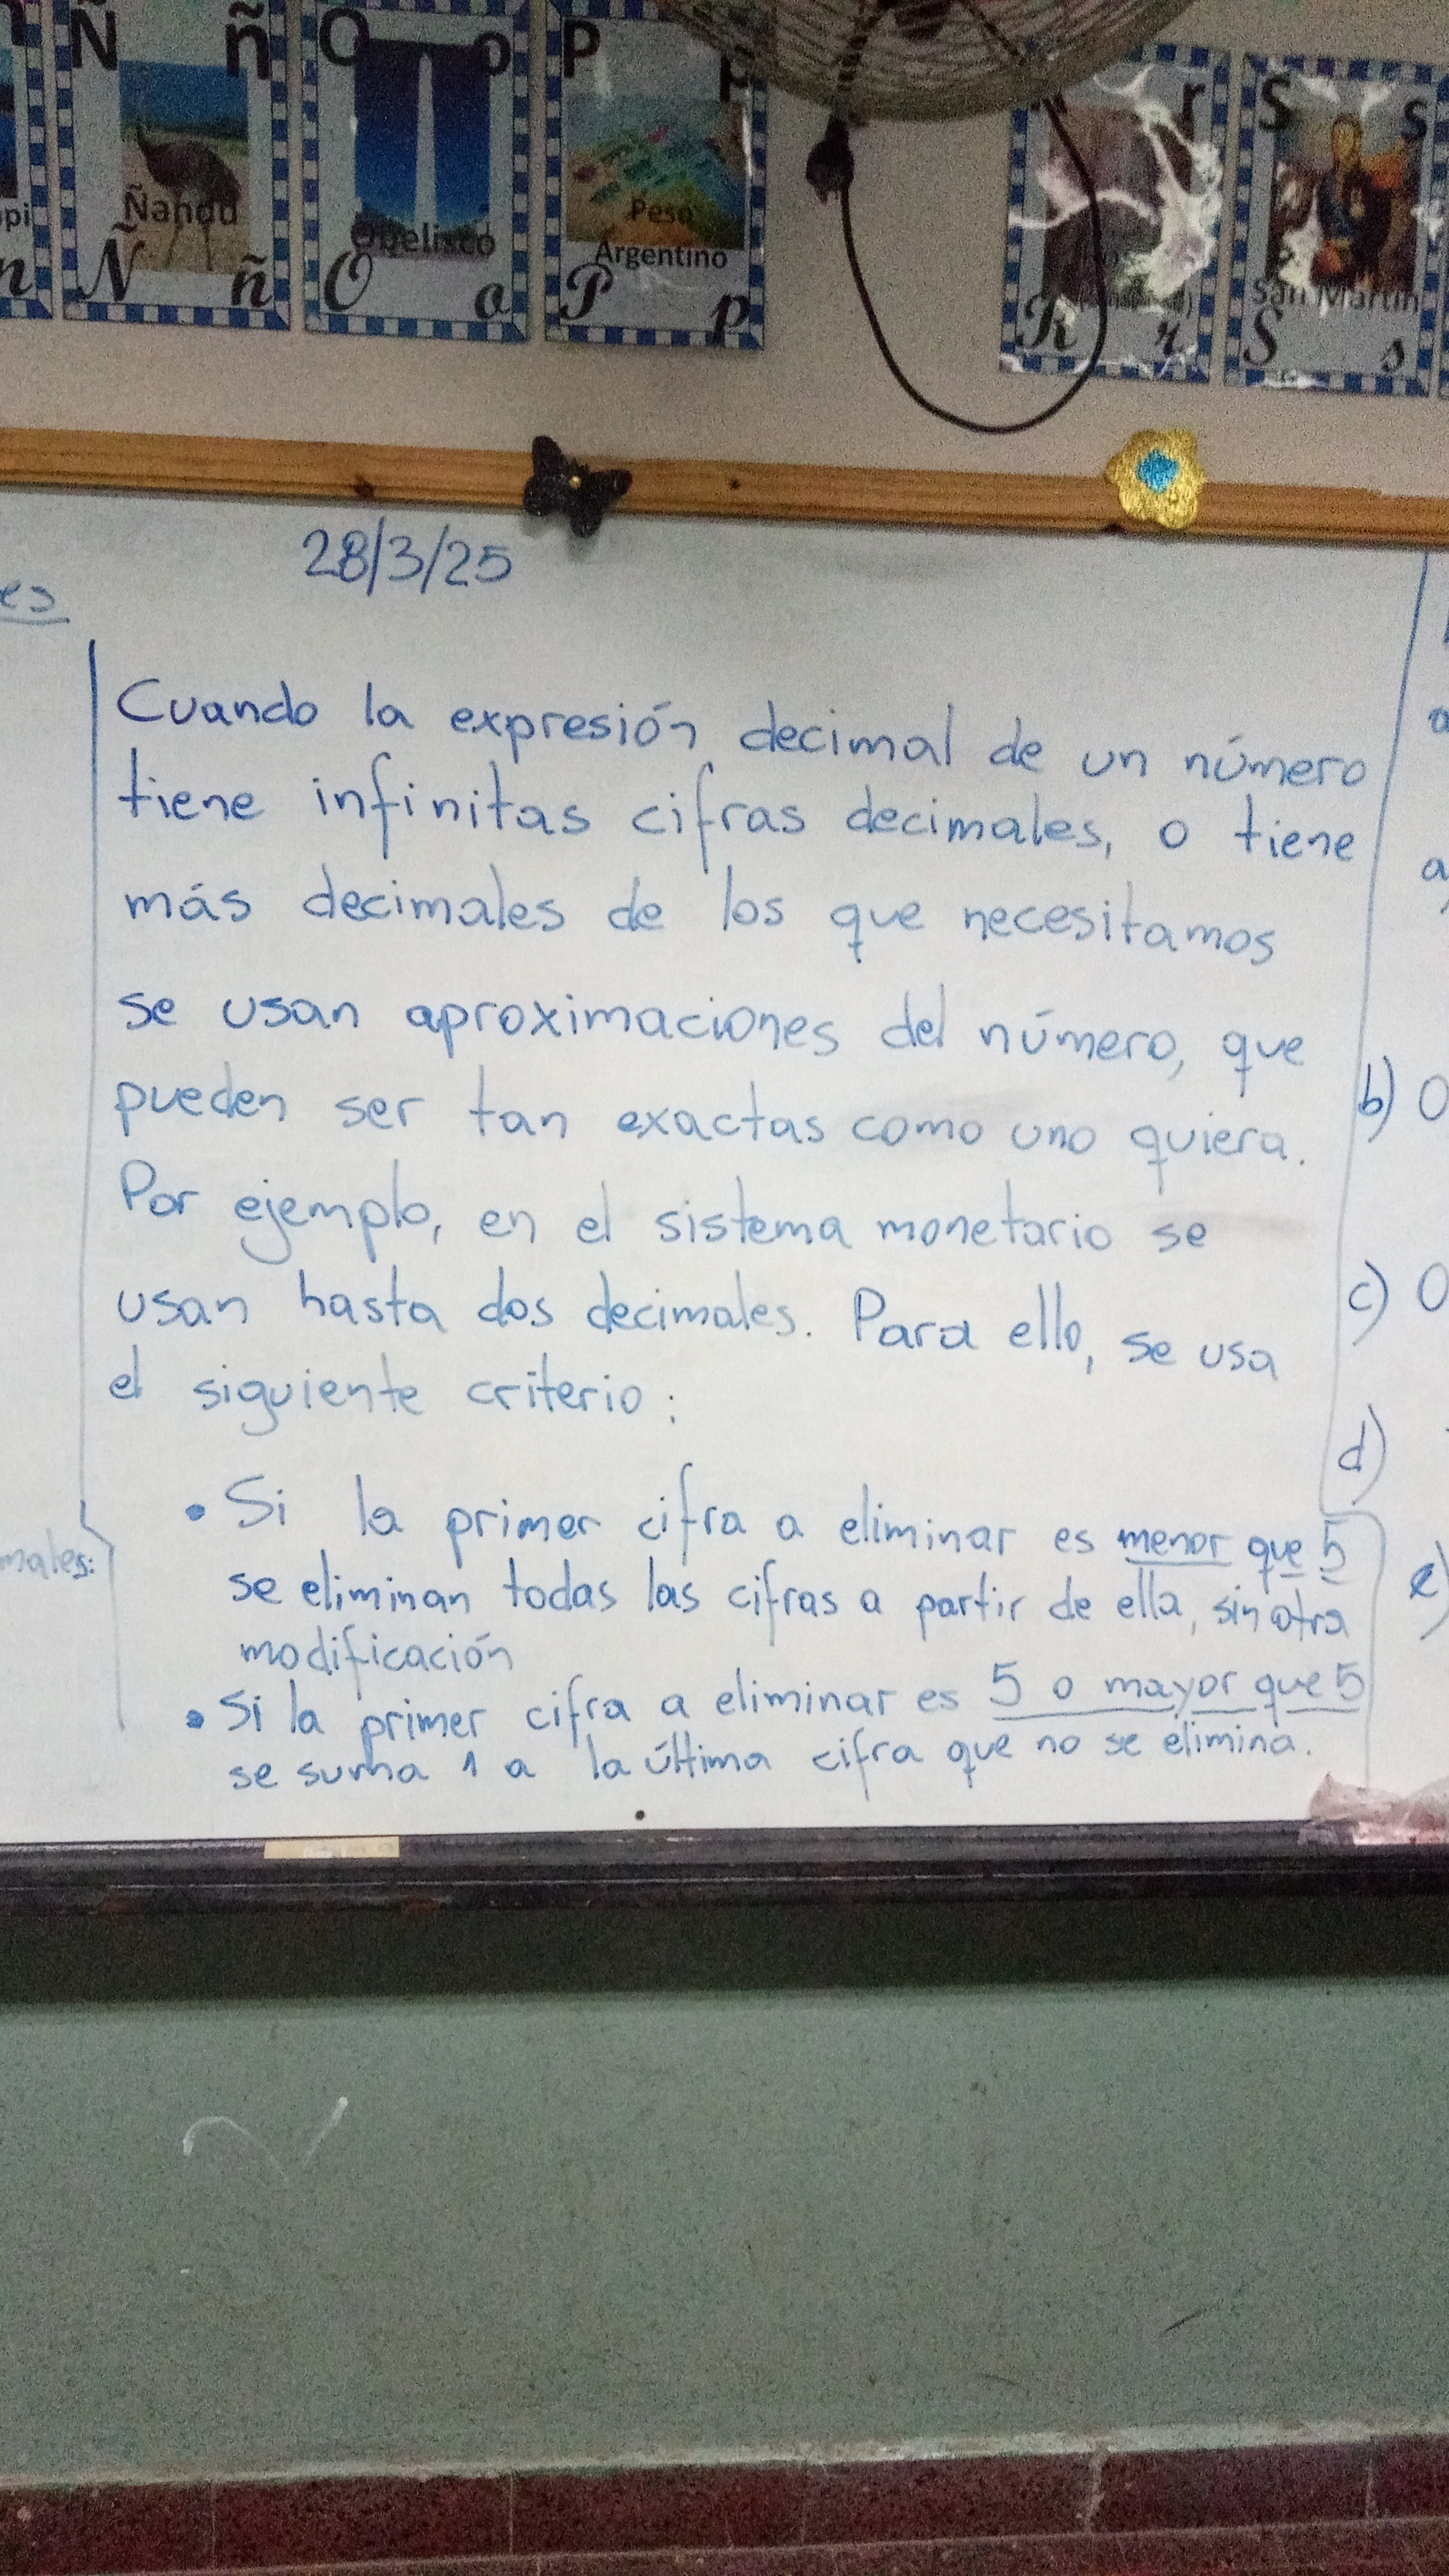 Ñ ñ O o P p r S s
pi Ñandú Obelisco Peso
Argentino San Martín
n Ñ ñ O o P p R r S s
28/3/25
es
Cuando la expresión decimal de un número
tiene infinitas cifras decimales, o tiene
más decimales de los que necesitamos
se usan aproximaciones del número, que
pueden ser tan exactas como uno quiera.
Por ejemplo, en el sistema monetario se
usan hasta dos decimales. Para ello, se usa
el siguiente criterio:
• Si la primer cifra a eliminar es menor que 5
se eliminan todas las cifras a partir de ella, sin otra
modificación
• Si la primer cifra a eliminar es 5 o mayor que 5
se suma 1 a la última cifra que no se elimina.
males:
a
a
b) 0
c) 0
d)
e)